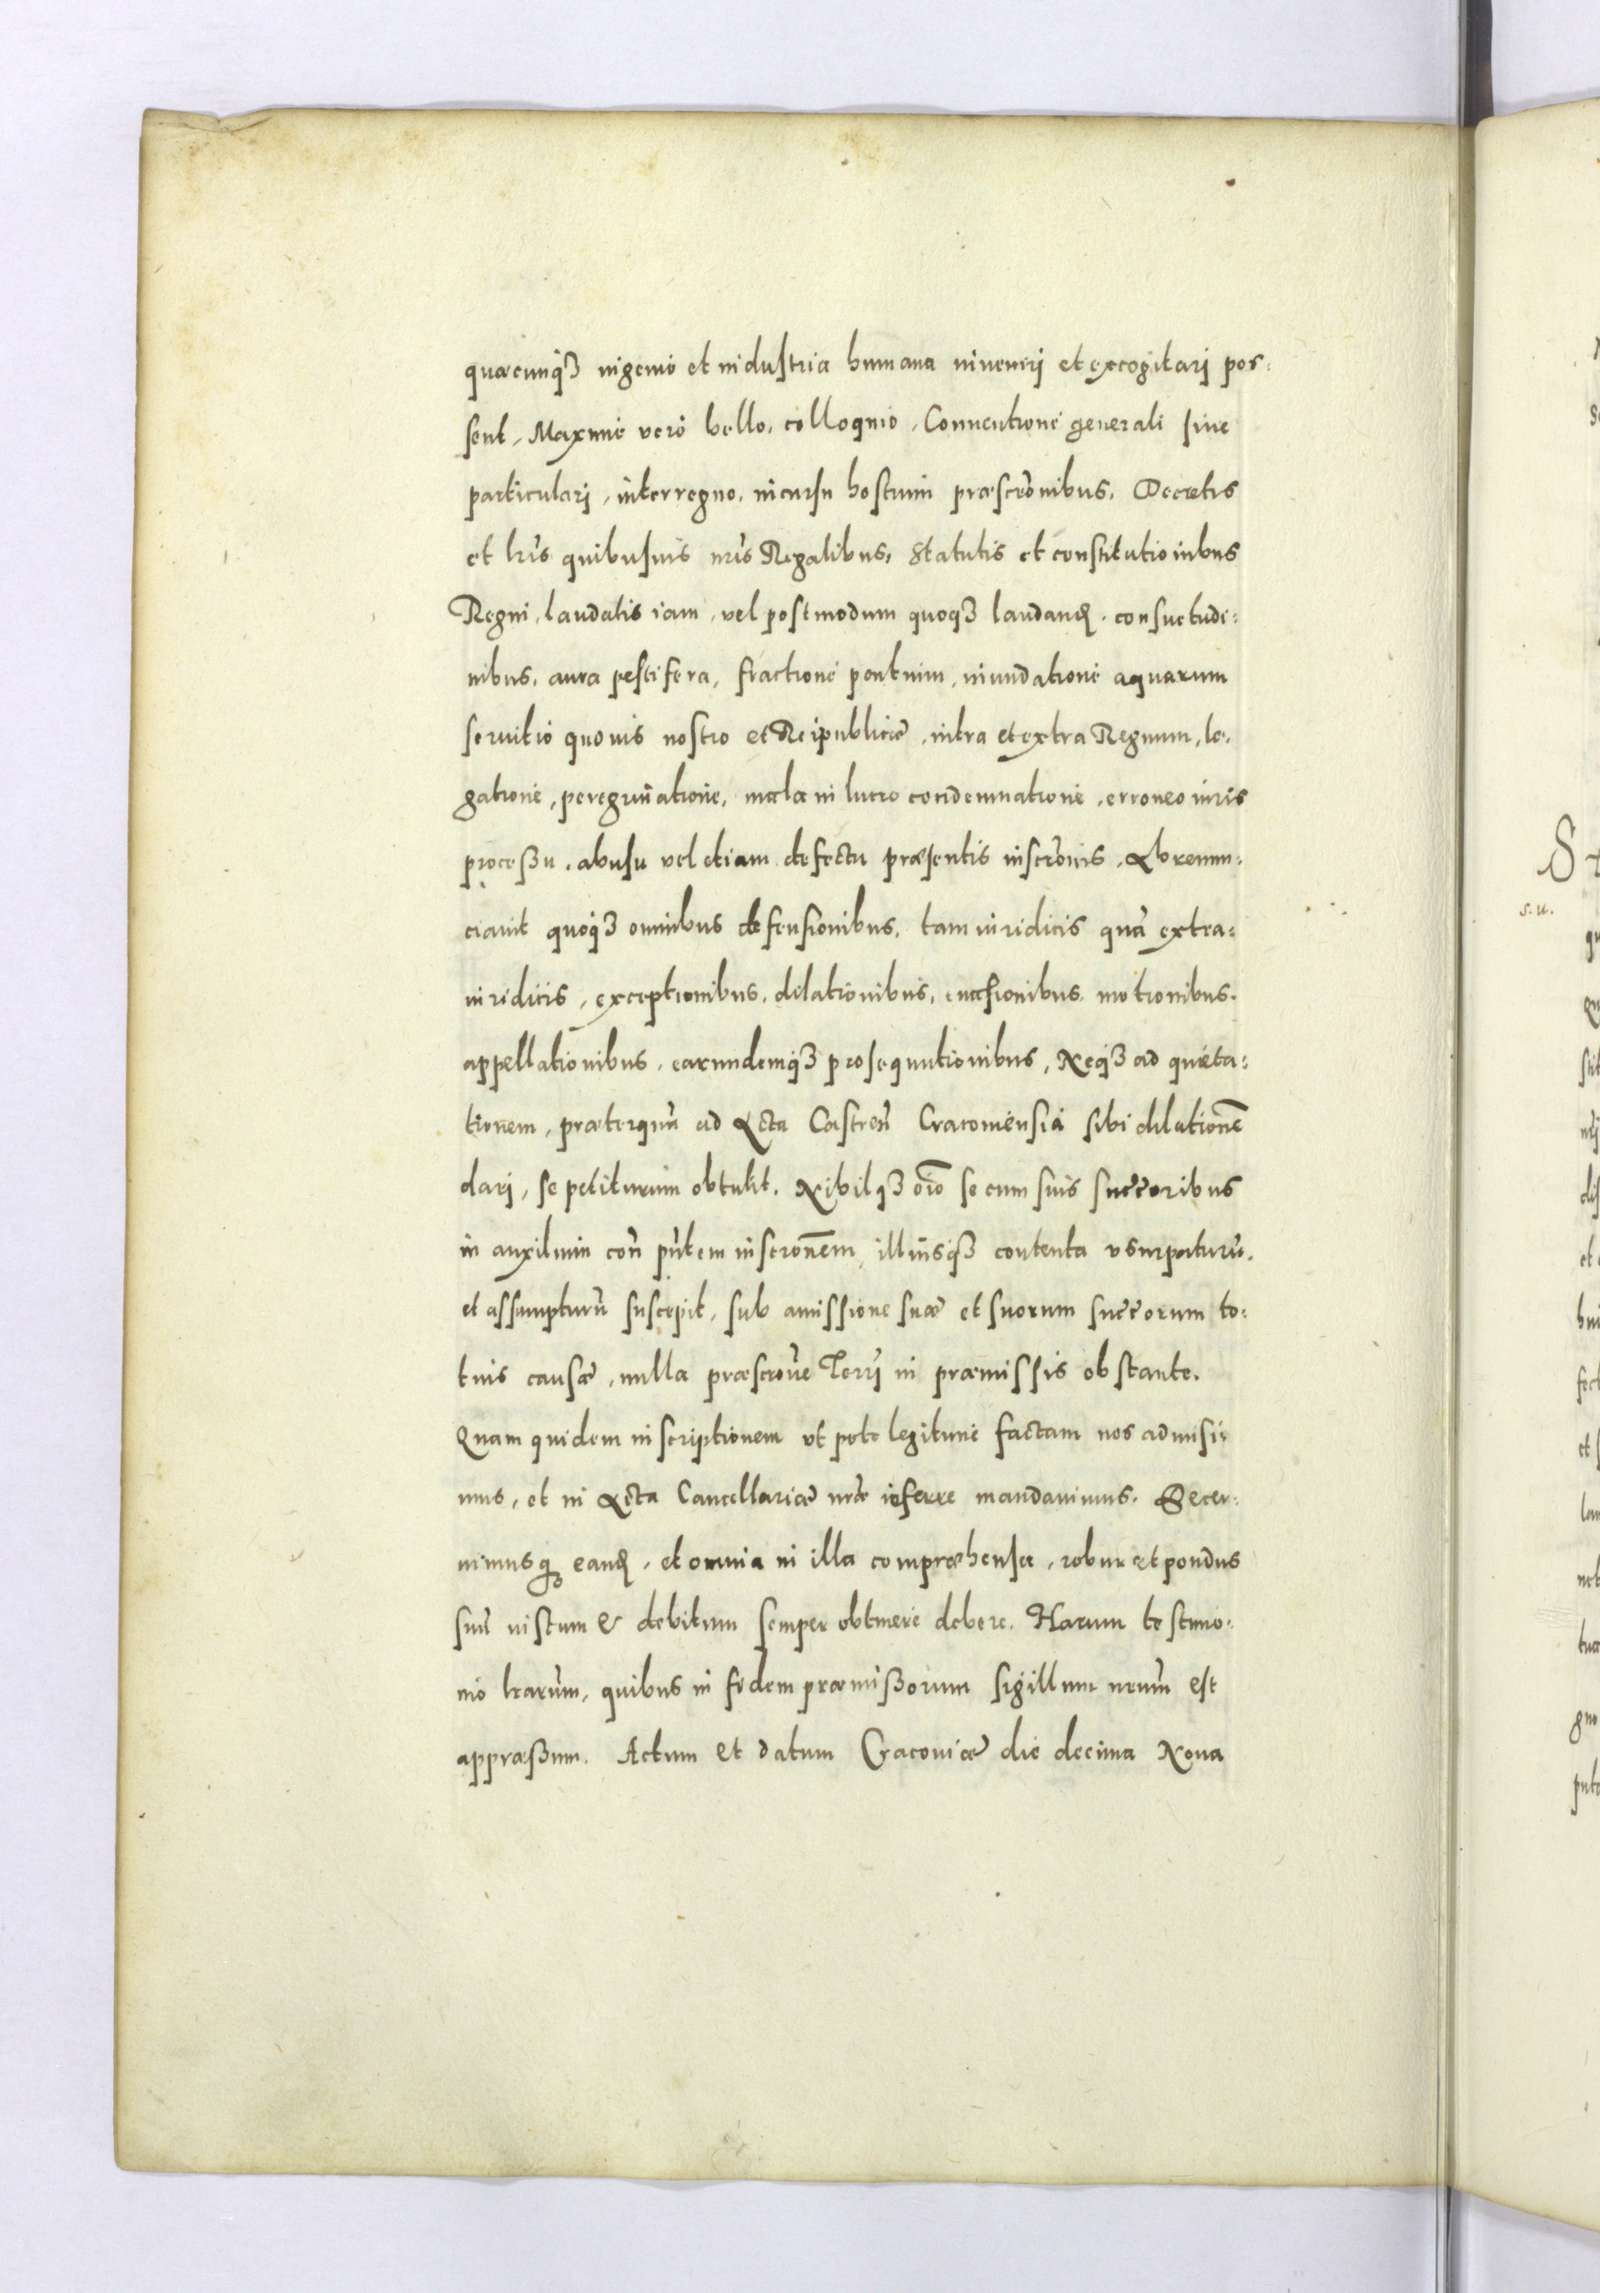 quæcunqʒ ingenio et industria humana inveniri et excogitarj pos:
sent, Maxime vero bello, colloquio, Conventione generali sive
particularj, interregno, incursu hostium præscrōnibus, Decretis
et lrīs quibusvis nrīs Regalibus, Statutis et constitutionibus
Regni, laudatis iam, vel postmodum quoqʒ laudanđ, consuetudi:
nibus, aura pestifera, fractione pontium, inundatione aquarum
servitio quovis nostro et Reipublicæ, intra et extra Regnum, le:
gatione, peregrinatione, mala in lucro condemnatione, erroneo iuris
processu, abusu vel etiam defectu præsentis inscrōnis, Abrenun:
ciavit quoqʒ omnibus defensionibus, tam iuridicis quā extra:
iuridicis, exceptionibus, dilationibus, evasionibus, motionibus,
appellationibus, earundemqʒ prosequutionibus, Neqʒ ad quieta:
tionem, præterquā ad Acta Castreñ Cracoviensia sibi dilationē
darj, se petiturum obtulit. Nihilqʒ oīo se cum suis succ̄oribus
in auxilium coñ pn̄tem inscrōnem, illiusqʒ contenta usurpaturū,
et assumpturū suscepit, sub amissione suæ et suorum succ̄orum to:
tius causæ, nulla præscrōne Terrī in præmissis obstante.
Quam quidem inscriptionem ut pote legitime factam nos admisi:
mus, et in Acta Cancellariæ nrǣ inferre mandavimus. Decer:
nimusqʒ eanđ, et omnia in illa compræhensa, robur et pondus
suū iustum & debitum semper obtinere debere. Harum testimo:
nio lrarūm, quibus in fidem præmissorum sigillum nrūm est
appræssum. Actum et datum Cracoviæ die decima Nona
S
s. u.